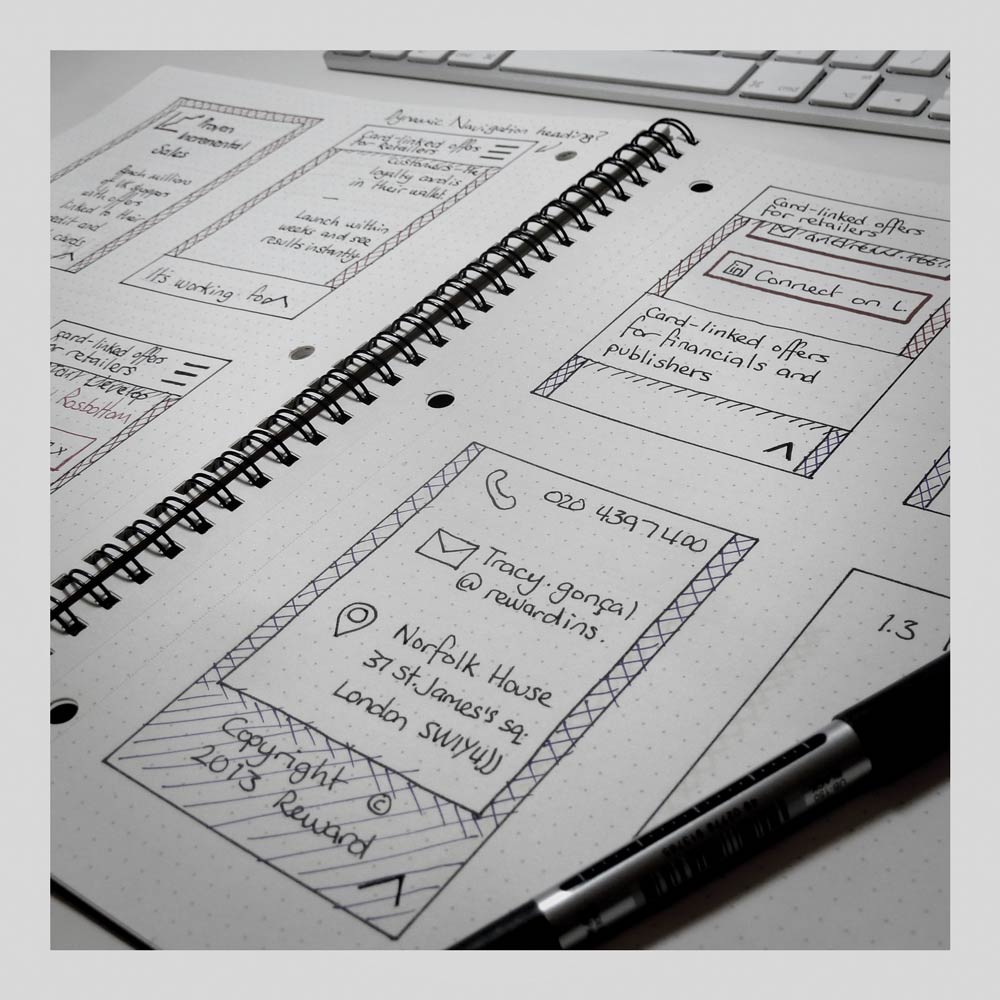 Dynamic Navigation heading?
Proven
Incremental
Sales
Reach millions
of UK shoppers
with offers
linked to their
credit and
cards
Card-linked offers
for retailers
customers - the
loyalty card is
in their wallet.
Launch within
weeks and see
results instantly.
It's working for
Card-linked offers
for retailers
Develop
Rosbottom
Card-linked offers
for retailers
andrew.
in Connect on L.
Card-linked offers
for financials and
publishers
020 4397400
Tracy.gonçal
@rewardins.
Norfolk House
37 St.James's sq.
London SW1Y4JJ
Copyright ©
2013 Reward
1.3
cmd